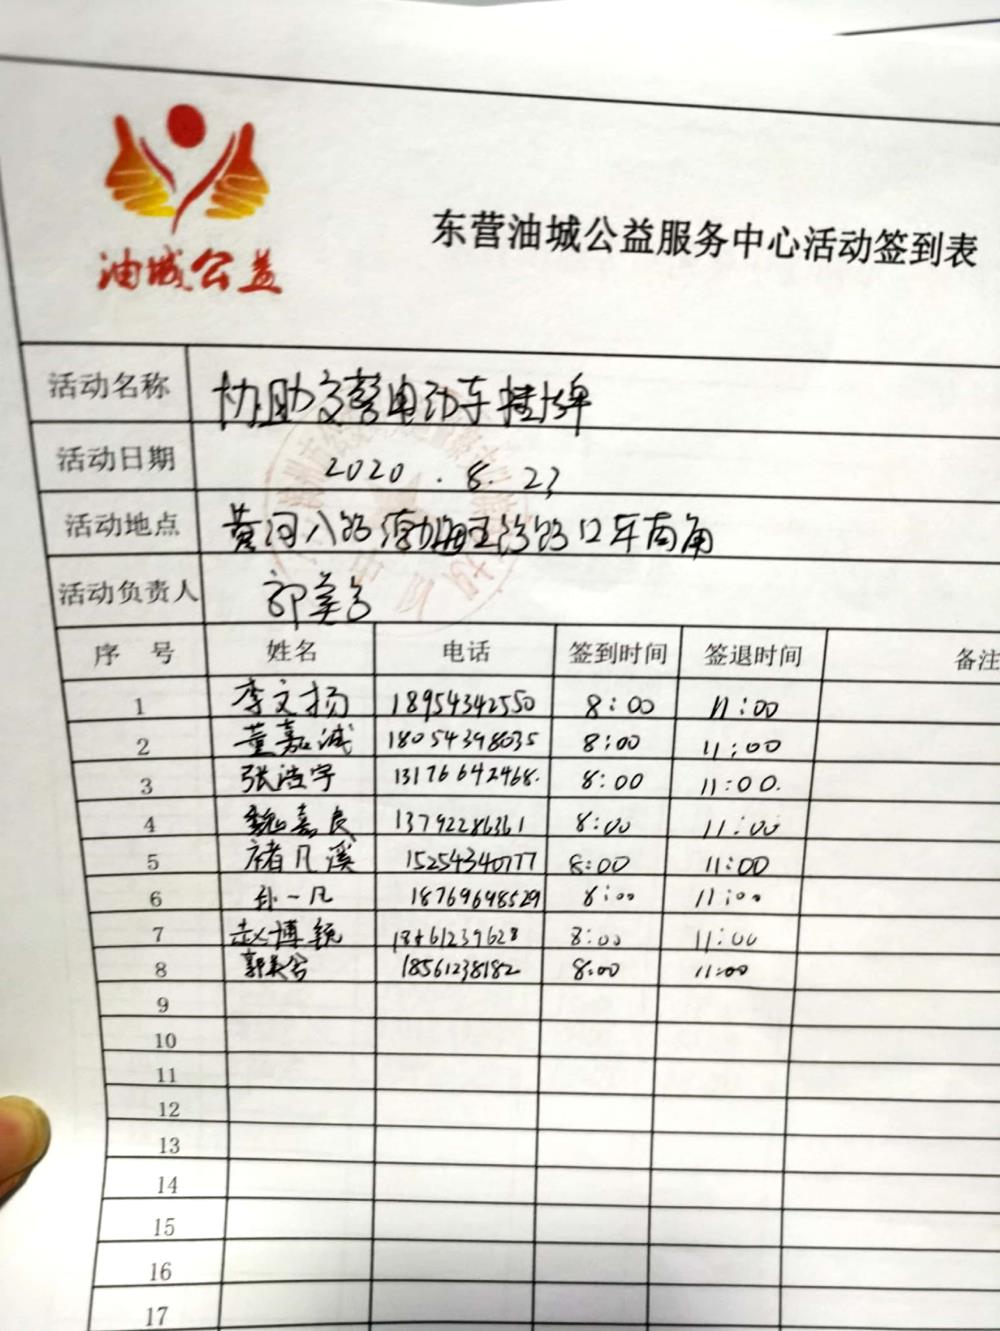 油城公益
东营油城公益服务中心活动签到表
活动名称 协助交警电动车挂牌
活动日期 2020.8.23
活动地点 黄河八路渤海五路路口东南角
活动负责人 郭美
序号 姓名 电话 签到时间 签退时间 备注
1 李文扬 18954342550 8:00 11:00
2 董嘉诚 18054398035 8:00 11:00
3 张浩宇 13176642468. 8:00 11:00.
4 魏嘉良 13792286361 8:00 11:00
5 褚凡溪 15254340777 8:00 11:00
6 孙一凡 18769648529 8:00 11:00
7 赵博颖 8:00 11:00
8 郭美 18561238182 8:00 11:00
9
10
11
12
13
14
15
16
17